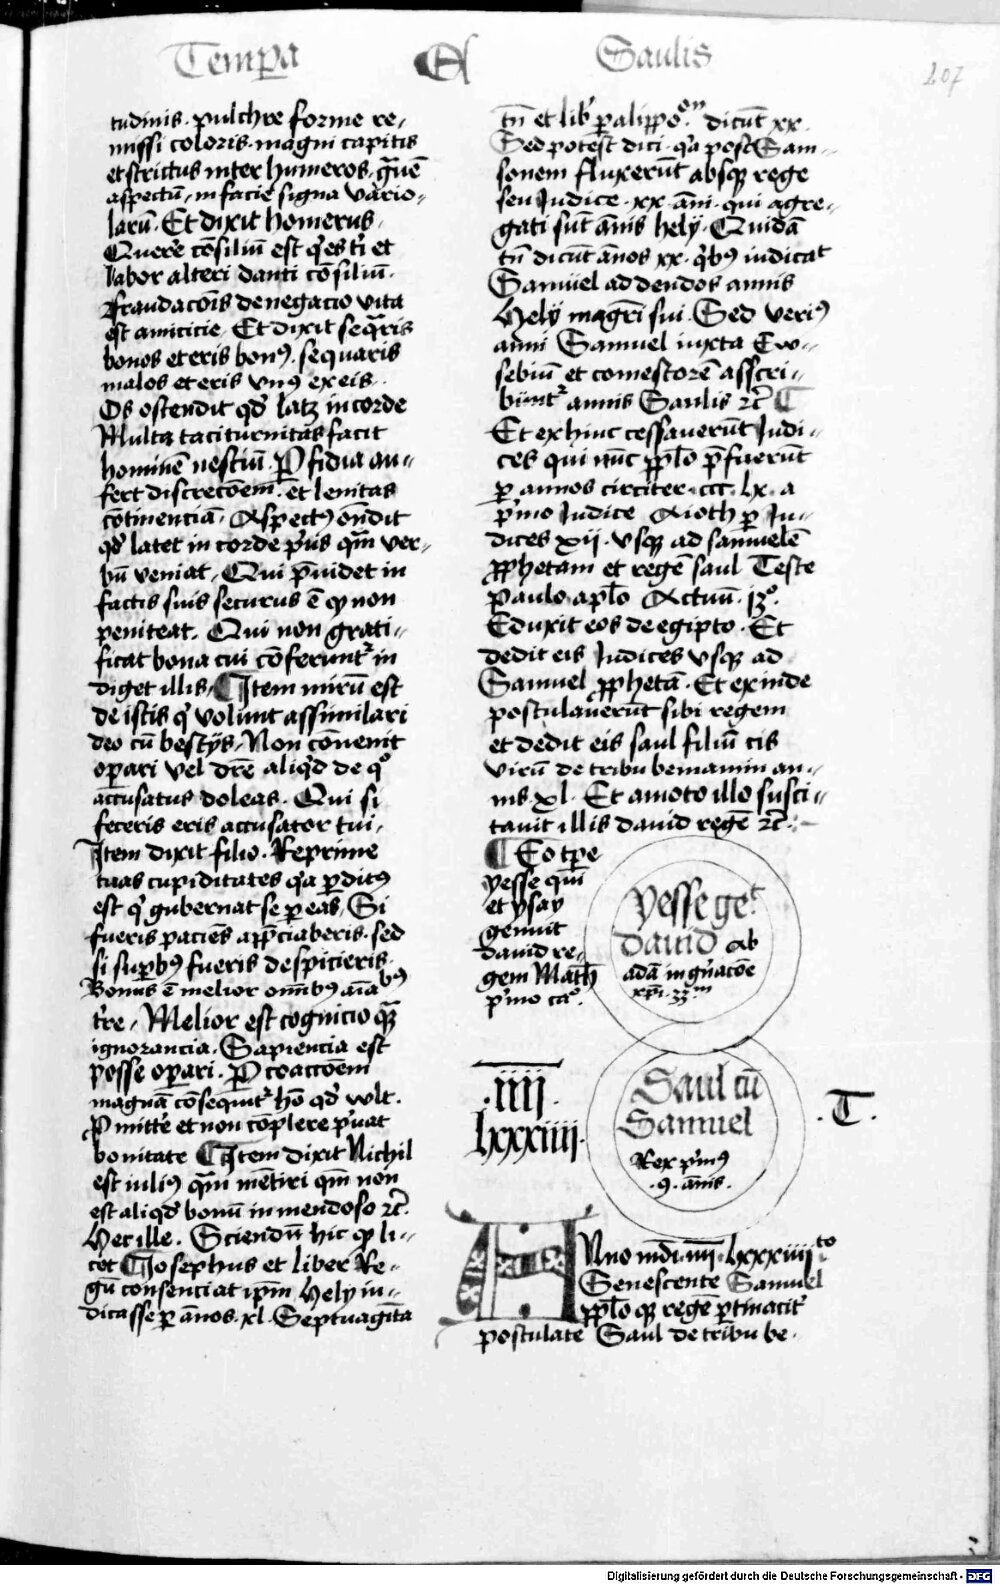 Tempa El Saulis
207
tudinis. pulchre forme re-
missi coloris. magni capitis
et strictus inter humeros. gͣuē
aspectū. in facie signa vario-
larū. Et dixit homerus.
Querē cōsiliū est qͥes tͥ et
labor alteri danti cōsiliū.
fraudacōis denegacio vita
est amicicie. Et dixit seqͣris
bonos et eris bonꝰ. sequaris
malos et eris vnꝰ ex eis.
Os ostendit qd̄ latz in corde
Multa taciturnitas facit
hominē nesciū. Pfidia au-
fert discrecōem. et lenitas
cōtinenciā. Aspectꝰ on̄dit
qd̄ latet in corde pͥus qͣm ver-
bū veniat. Qui pͤuidet in
factis suis securus ē qꝫ non
peniteat. Qui non grati-
ficat bona cui cōferuntͬ in
diget illis. Item mirū est
de istis qͥ volunt assimilari
deo cū bestijs. Non cōuenit
oꝑari vel dr̄e aliqͥd de qͦ
accusatus doleas. Qui si
feceris eris accusator tui.
Item dixit filio. Reprime
tuas cupiditates qͥa ꝑditꝰ
est qͥ gubernat se ꝑ eas. Si
fueris paciēs appͤciaberis. sed
si suꝑbꝰ fueris despicieris.
Bonus ē melior om̄ibꝰ aīabꝰ
tr̄e. Melior est cognicio qͣꝫ
ignorancia. Sapiencia est
posse oꝑari. P coaccōem
magnā cōsequitͬ hō qd̄ wlt.
Pmittͤe et non cōplere pͥuat
bonitate Item dixit Nichil
est iuliꝰ qͣm mētiri qͣm non
est aliqd̄ bonū in mendoso ꝛc̄.
Hec ille. Sciendū hic qꝫ li-
cet Josephus et liber Re-
gū consenciat ip̄m Hely iu-
dicasse ꝑ ānos. xl. Septuagīta
tn̄ et lib̓ ꝑalippoͦⁿ dicūt xx.
Sed potest dici. qͥa post Sam-
sonem fluxerūt absqꝫ rege
seu Judice. xx. āni. qui agre-
gati sūt ānis hely. Quidā
tn̄ dicūt ānos xx. qͥbꝰ iudicat
Samuel addendos annis
Hely magrī sui. Sed veriꝰ
anni Samuel iuxta Ew-
sebiū et comestorē asscri-
buntͬ annis Saulis ꝛc̄
Et ex hinc cessauerūt Judi-
ces qui nūc pp̄lo pͤfuerūt
ꝑ annos circiter. ccc. lx. a
pͥmo Judice Aioth ꝑ Ju-
dices xij. vsqꝫ ad samuelē
ꝓphetam et regē saul Teste
Paulo apl̄o Actuū. 13ͦ.
Eduxit eos de egipto. Et
dedit eis Judices vsqꝫ ad
Samuel ꝓphetā. Et exinde
postulauerūt sibi regem
et dedit eis saul filiū cis
virū de tribu beniamin an-
nis. xl. Et amoto illo susci-
tauit illis dauid regē ꝛc̄.
Eo tꝑe
yesse qui
et ysay
genuit
dauid re-
gem Math
pͥmo caͦ.
yesse geͭ
dauid ab
adā in gn̄acōe
xpī. 33.ᵐ
.iiij.
lxxxiiij.
Saul cū
Samuel
Rex pͥmꝰ
.9. ānis.
.T.
Anno mdi. iiij. lxxxiiijͭͦ
Senescente Samuel
pp̄lo qꝫ regē ꝑtinacitͬ
postulate Saul de tribu be-
Digitalisierung gefördert durch die Deutsche Forschungsgemeinschaft - DFG